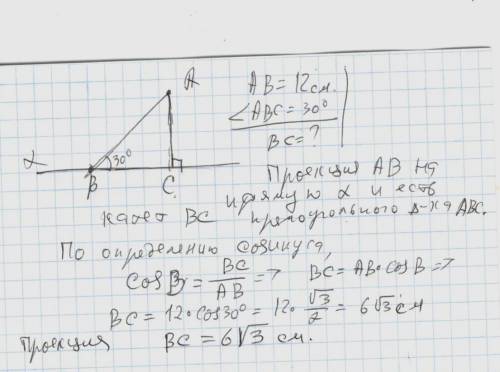 A
AB = 12 см.
∠ABC = 30°
BC = ?
α
30°
B
C
Проекция AB на
прямую α и есть
катет BC прямоугольного Δ-ка ABC.
По определению косинуса,
cos B = BC/AB => BC = AB · cos B =>
BC = 12 · cos 30° = 12 · √3/2 = 6√3 см
Проекция BC = 6√3 см.